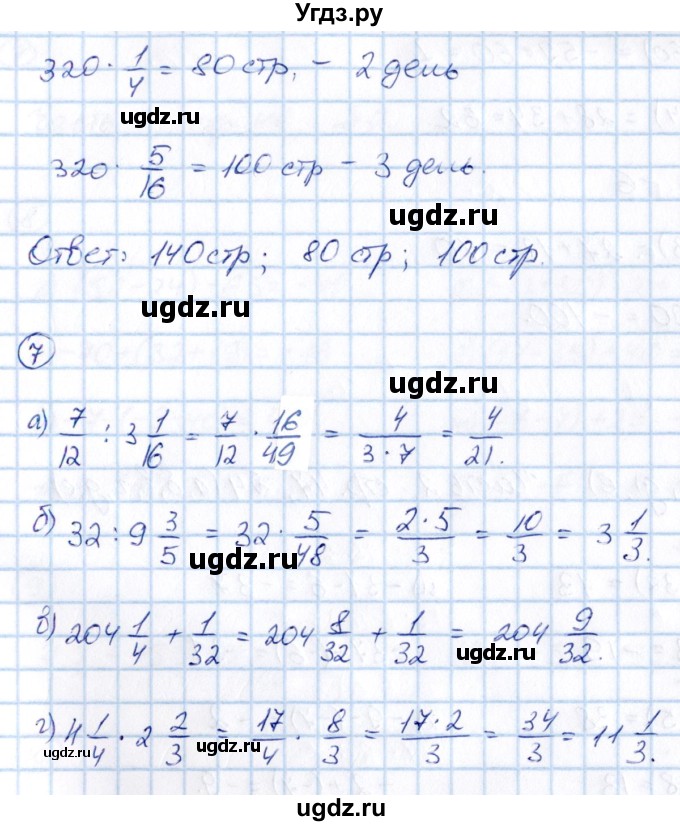 Угдз.ру
320 · 1/4 = 80 стр. – 2 день
ugdz.ru
320 · 5/16 = 100 стр – 3 день.
ugdz.ru
Ответ: 140 стр; 80 стр; 100 стр.
ugdz.ru
7
ugdz.ru
а) 7/12 : 3 1/16 = 7/12 · 16/49 = 4/(3·7) = 4/21.
б) 32 : 9 3/5 = 32 · 5/48 = (2·5)/3 = 10/3 = 3 1/3.
ugdz.ru
в) 204 1/4 + 1/32 = 204 8/32 + 1/32 = 204 9/32.
ugdz.ru
г) 4 1/4 · 2 2/3 = 17/4 · 8/3 = (17·2)/3 = 34/3 = 11 1/3.
ugdz.ru
ugdz.ru
ugdz.ru